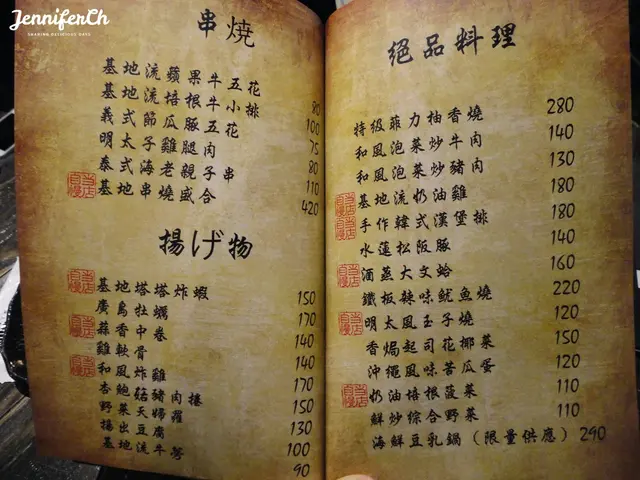 JenniferCh
SHARING DELICIOUS DAYS
串燒
基地流蘋果牛五花 80
基地流培根牛小排 100
義式節瓜豚五花 75
明太子雞腿肉 80
泰式海老親子串 110
當店自慢 基地串燒盛合 420
揚げ物
當店自慢 基地塔塔炸蝦 150
廣島牡蠣 170
當店自慢 蒜香中卷 140
雞軟骨 140
當店自慢 和風炸雞 170
杏鮑菇豬肉捲 150
野菜天婦羅 130
揚出豆腐 100
基地流牛蒡 90
絕品料理
特級菲力柚香燒 280
和風泡菜炒牛肉 140
和風泡菜炒豬肉 130
當店自慢 基地流奶油雞 180
當店自慢 手作韓式漢堡排 180
水蓮松阪豚 140
當店自慢 酒蒸大文蛤 160
鐵板辣味魷魚燒 220
當店自慢 明太風玉子燒 120
香焗起司花椰菜 150
沖繩風味苦瓜蛋 120
當店自慢 奶油培根菠菜 110
鮮炒綜合野菜 110
海鮮豆乳鍋（限量供應） 290